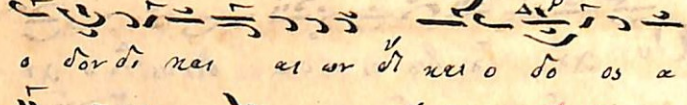 ο δον δι και αι ων δι και ο δο ος α